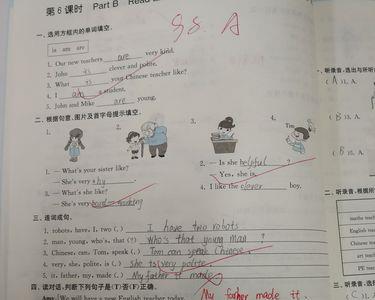 第 6 课时 Part B Read
98 A
一、选用方框内的单词填空。
in am are
1. Our new teachers are very kind.
2. John is clever and polite.
3. What is your Chinese teacher like?
4. I am a student.
5. John and Mike are young.
二、根据句意、图片及首字母提示填空。
1. 2. 3. 4. Tim
1. — What's your sister like?
— She's very shy
3. — What's she like?
— She's very hard-working
2. — Is she helpful ?
— Yes, she is.
4. I like the clever boy.
三、连词成句。
1. robots, have, I, two (.) I have two robots
2. man, young, who's, that (?) Who's that young man ?
3. Chinese, can, Tom, speak (.) Tom can speak Chinese.
4. very, she, polite, is (.) she is very polite
5. it, father, my, made (.) My father it made
My father made it.
四、读对话,判断下列句子是(T)否(F)正确。
Amy: We will have a new English teacher today.
一、听录音,选出与所
( A )1. A.
( B )3. A.
( B )5. A.
二、听录音,根
maths teac
English
Chinese te
art teac
PE teac
三、听录音,根